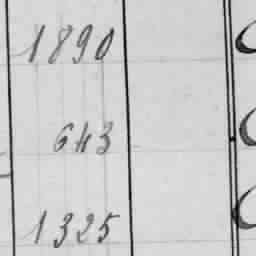 1890
643
1325